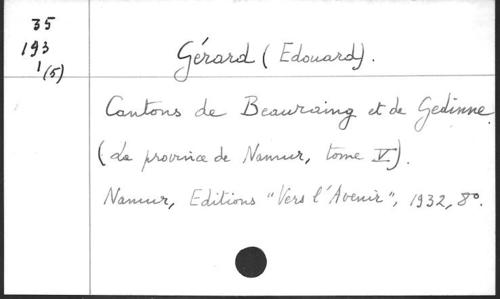 35
193
1/(5)
Gérard (Edouard).
Cantons de Beauraing et de Gedinne
(La province de Namur, tome V).
Namur, Editions "Vers l'Avenir", 1932, 8°.